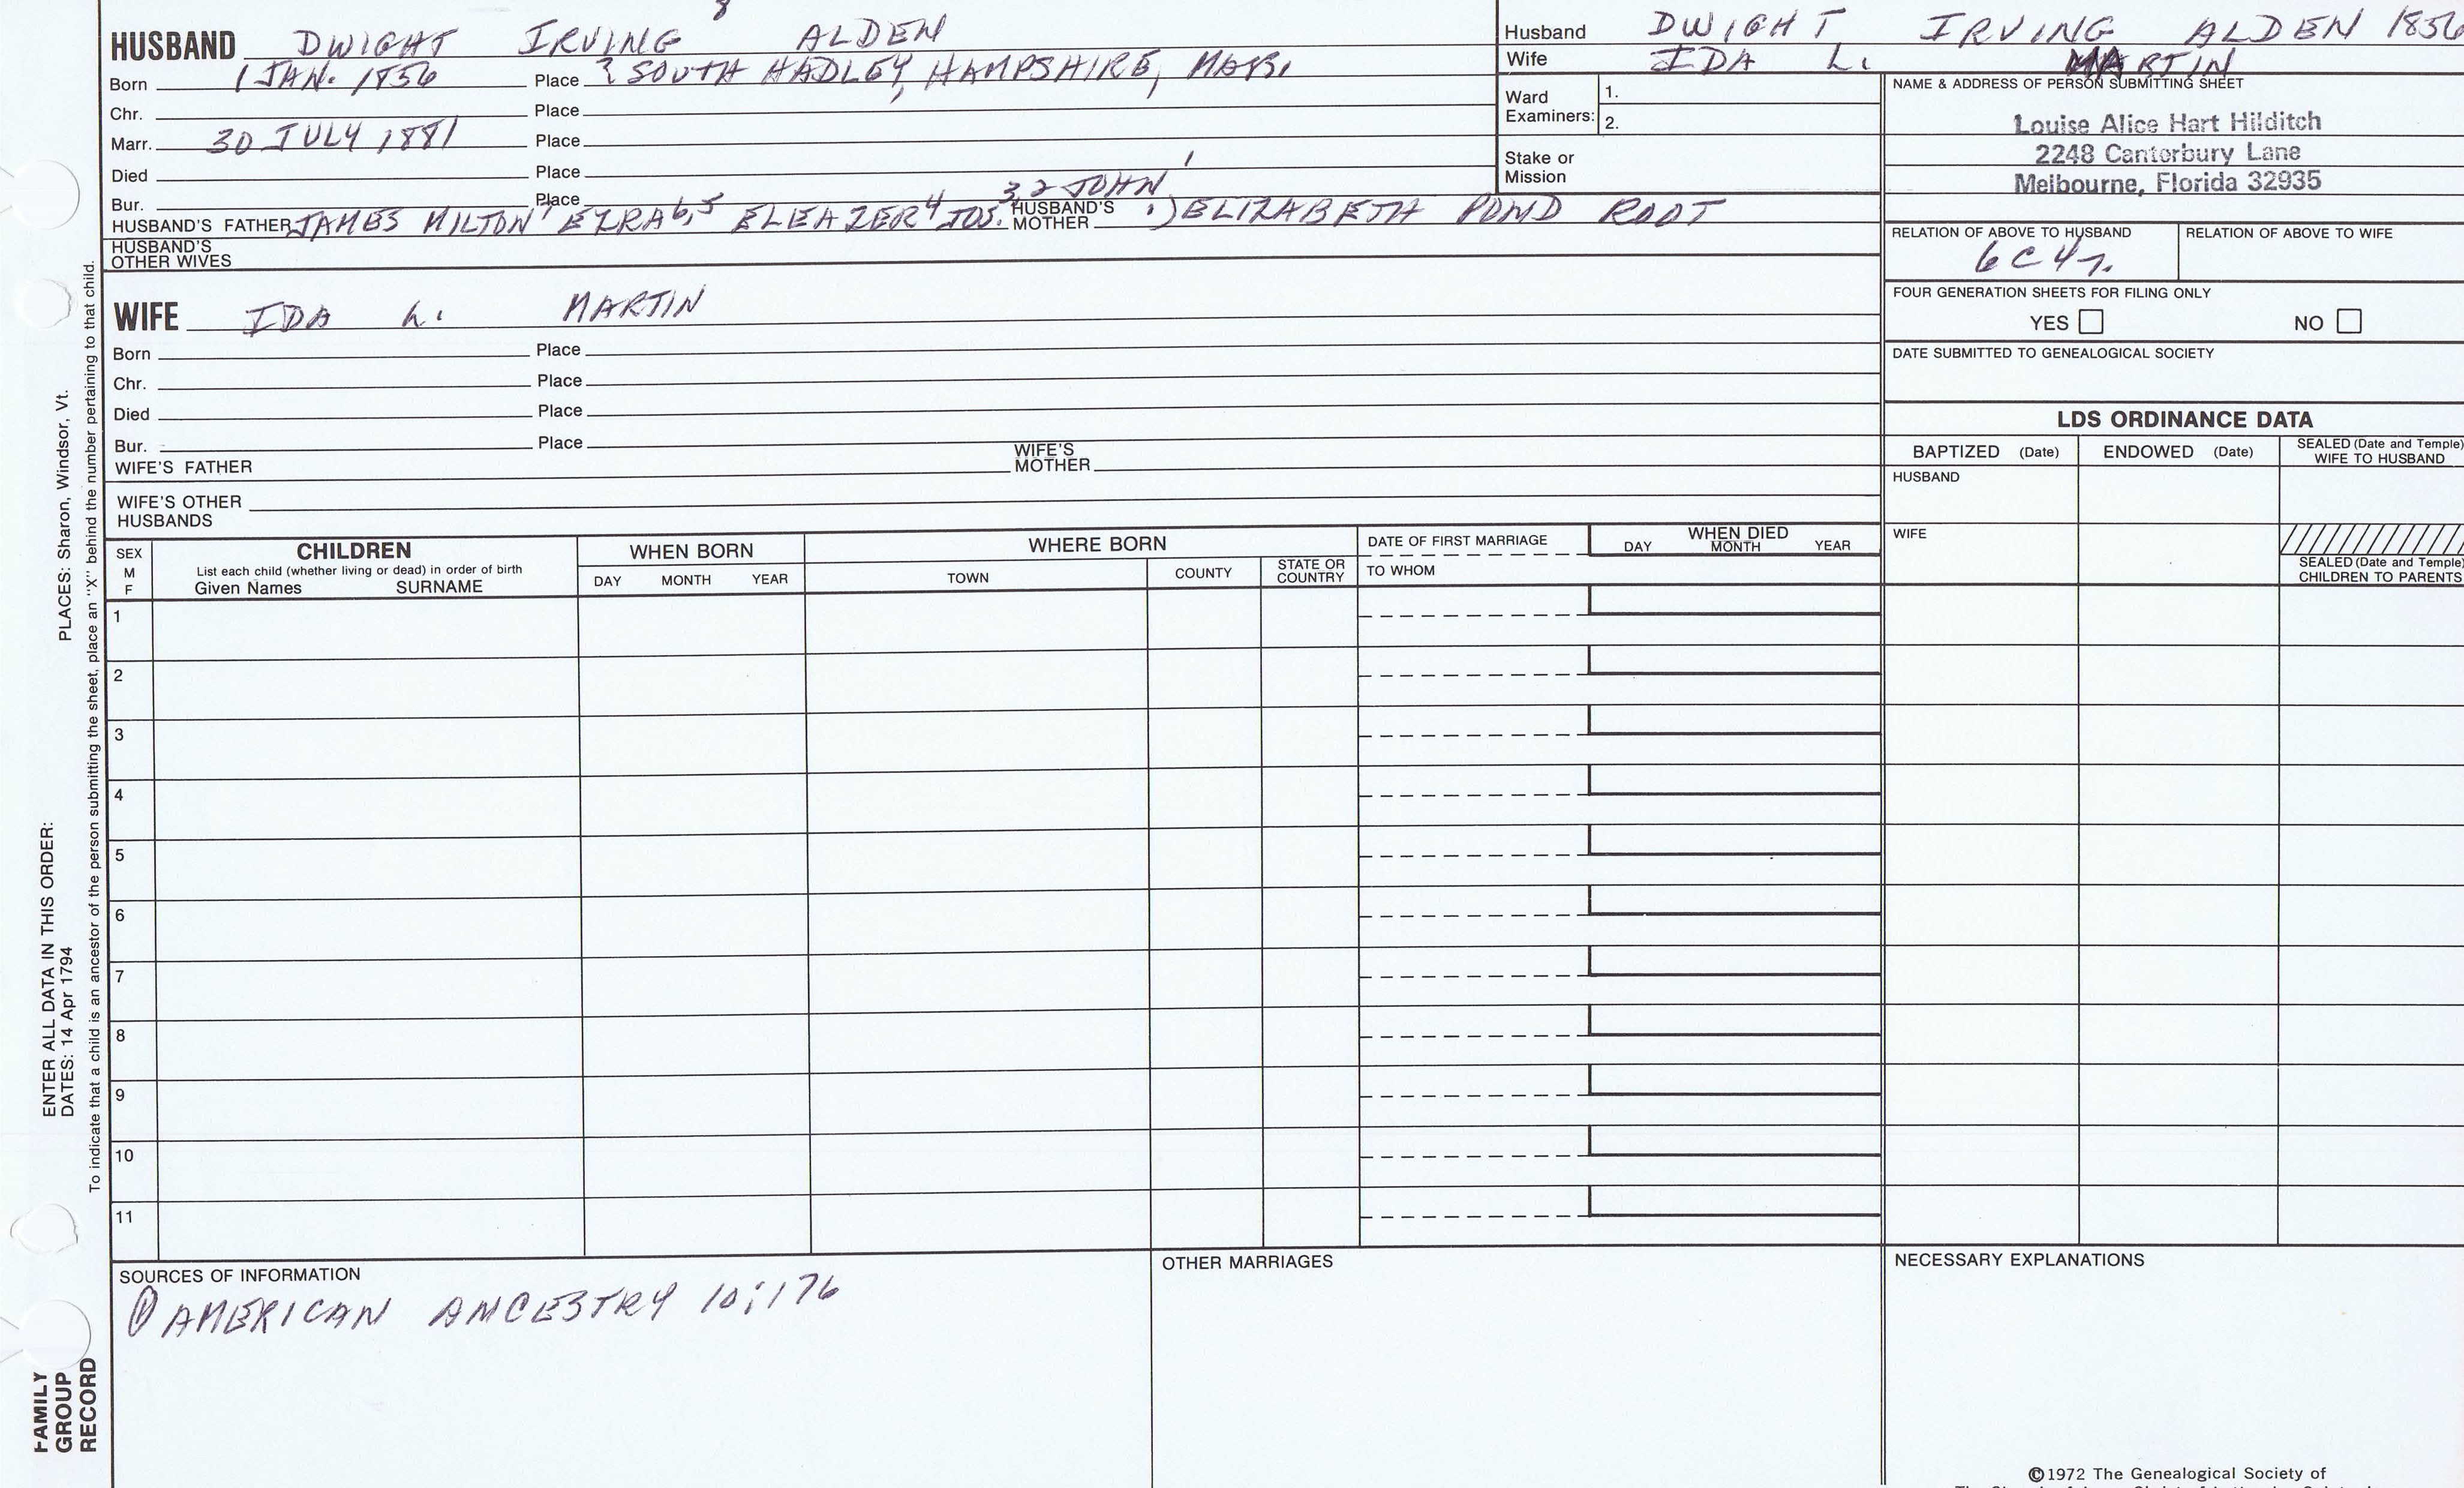 8
HUSBAND DWIGHT IRVING ALDEN
Born 1 JAN. 1856 Place ? SOUTH HADLEY, HAMPSHIRE, MASS.
Chr. Place
Marr. 30 JULY 1881 Place
Died Place
Bur. Place
HUSBAND'S FATHER JAMES MILTON7 EZRA6,5 ELEAZER4 JOS.3,2 JOHN1
HUSBAND'S MOTHER .) ELIZABETH POND ROOT
HUSBAND'S
OTHER WIVES
WIFE IDA L. MARTIN
Born Place
Chr. Place
Died Place
Bur. Place
WIFE'S FATHER WIFE'S MOTHER
WIFE'S OTHER
HUSBANDS
Husband DWIGHT IRVING ALDEN 1856
Wife IDA L. MARTIN
Ward
Examiners:
1.
2.
Stake or
Mission
NAME & ADDRESS OF PERSON SUBMITTING SHEET
Louise Alice Hart Hilditch
2248 Canterbury Lane
Melbourne, Florida 32935
RELATION OF ABOVE TO HUSBAND RELATION OF ABOVE TO WIFE
6C4r.
FOUR GENERATION SHEETS FOR FILING ONLY
YES NO
DATE SUBMITTED TO GENEALOGICAL SOCIETY
LDS ORDINANCE DATA
BAPTIZED (Date) ENDOWED (Date) SEALED (Date and Temple)
WIFE TO HUSBAND
HUSBAND
WIFE
SEALED (Date and Temple)
CHILDREN TO PARENTS
SEX
M
F
CHILDREN
List each child (whether living or dead) in order of birth
Given Names SURNAME
WHEN BORN
DAY MONTH YEAR
WHERE BORN
TOWN COUNTY STATE OR
COUNTRY
DATE OF FIRST MARRIAGE
TO WHOM
WHEN DIED
DAY MONTH YEAR
1
2
3
4
5
6
7
8
9
10
11
SOURCES OF INFORMATION
① AMERICAN ANCESTRY 10:176
OTHER MARRIAGES
NECESSARY EXPLANATIONS
©1972 The Genealogical Society of
ENTER ALL DATA IN THIS ORDER:
DATES: 14 Apr 1794 PLACES: Sharon, Windsor, Vt.
To indicate that a child is an ancestor of the person submitting the sheet, place an "X" behind the number pertaining to that child.
FAMILY
GROUP
RECORD